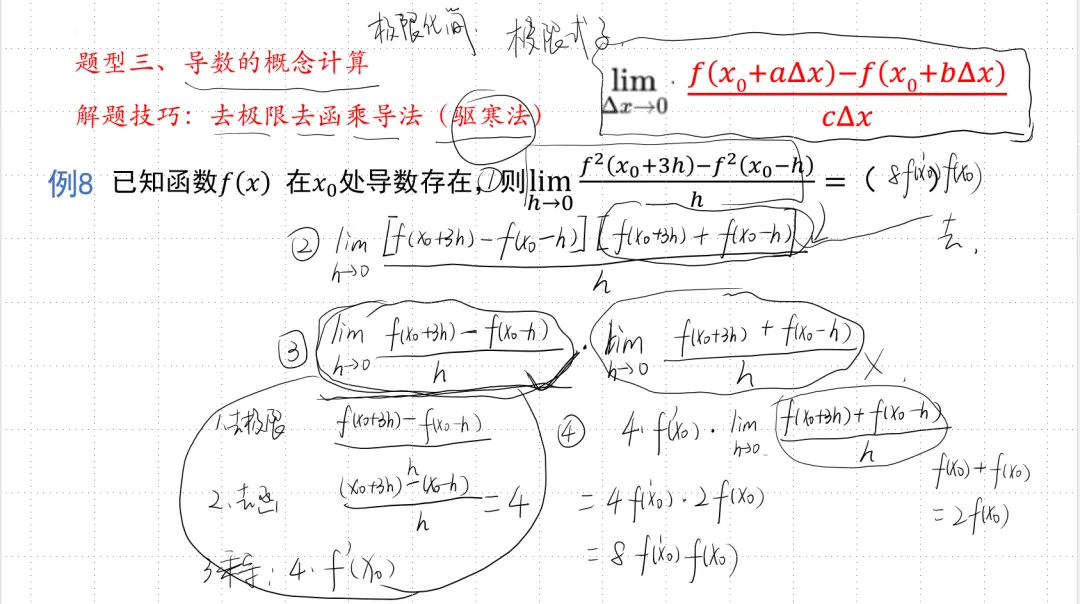 极限化简: 极限式子.
题型三、导数的概念计算
解题技巧：去极限去函乘导法（驱寒法）
lim Δx→0 · f(x₀+aΔx)−f(x₀+bΔx) / cΔx
例8 已知函数f(x) 在x₀处导数存在，①则 lim h→0 f²(x₀+3h)−f²(x₀−h) / h = ( 8f'(x₀)f(x₀) )
② lim h→0 [f(x₀+3h)−f(x₀−h)][f(x₀+3h)+f(x₀−h)] / h 去.
③ lim h→0 f(x₀+3h)−f(x₀−h) / h · lim h→0 f(x₀+3h)+f(x₀−h) / h ×.
1.去极限 f(x₀+3h)−f(x₀−h) / h
2.去函 (x₀+3h)−(x₀−h) / h = 4
3.乘导: 4·f'(x₀)
④ 4·f'(x₀)·lim h→0 f(x₀+3h)+f(x₀−h) / h
= 4f'(x₀)·2f(x₀)
= 8f'(x₀)f(x₀)
f(x₀)+f(x₀)
= 2f(x₀)